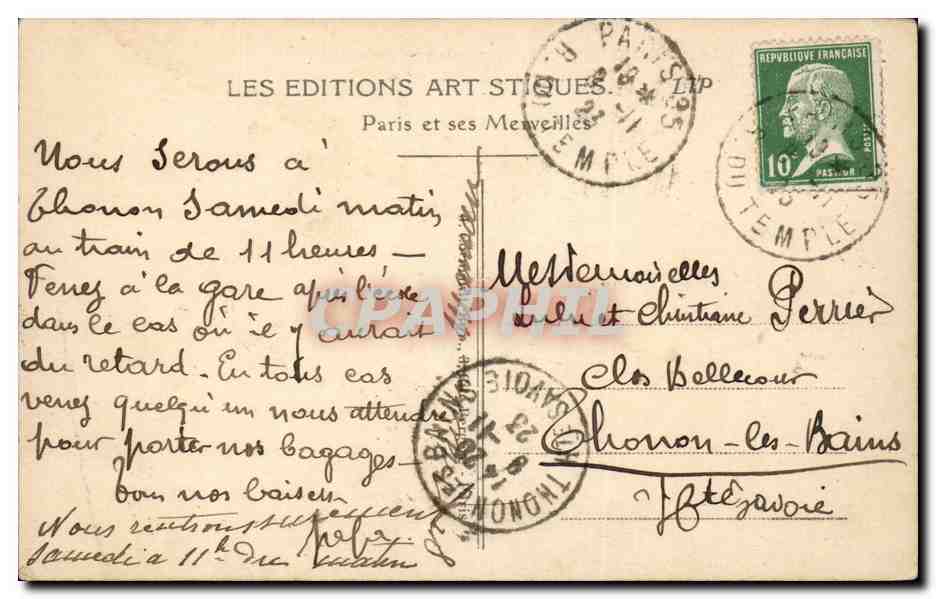 LES EDITIONS ART STIQUES.
LTP
Paris et ses Merveilles
PARIS 25
18 *
8 -11
23
R. DU TEMPLE
REPVBLIQUE FRANÇAISE
10c
POSTES
PASTEUR
DU TEMPLE
Nous serons à
Thonon Samedi matin
au train de 11 heures -
Venez à la gare après l'école
dans le cas où il y aurait
du retard. En tous cas
venez quelqu'un nous attendre
pour porter nos bagages -
bons nos baisers
Nous rentrons surement
Samedi a 11h du matin
Mesdemoiselles
Lulu et Christiane Perrier
Clos Bellecour
Thonon-les-Bains
Hte Savoie
THONON-LES-BAINS
Hte SAVOIE
9 -11
23
CPAPHIL